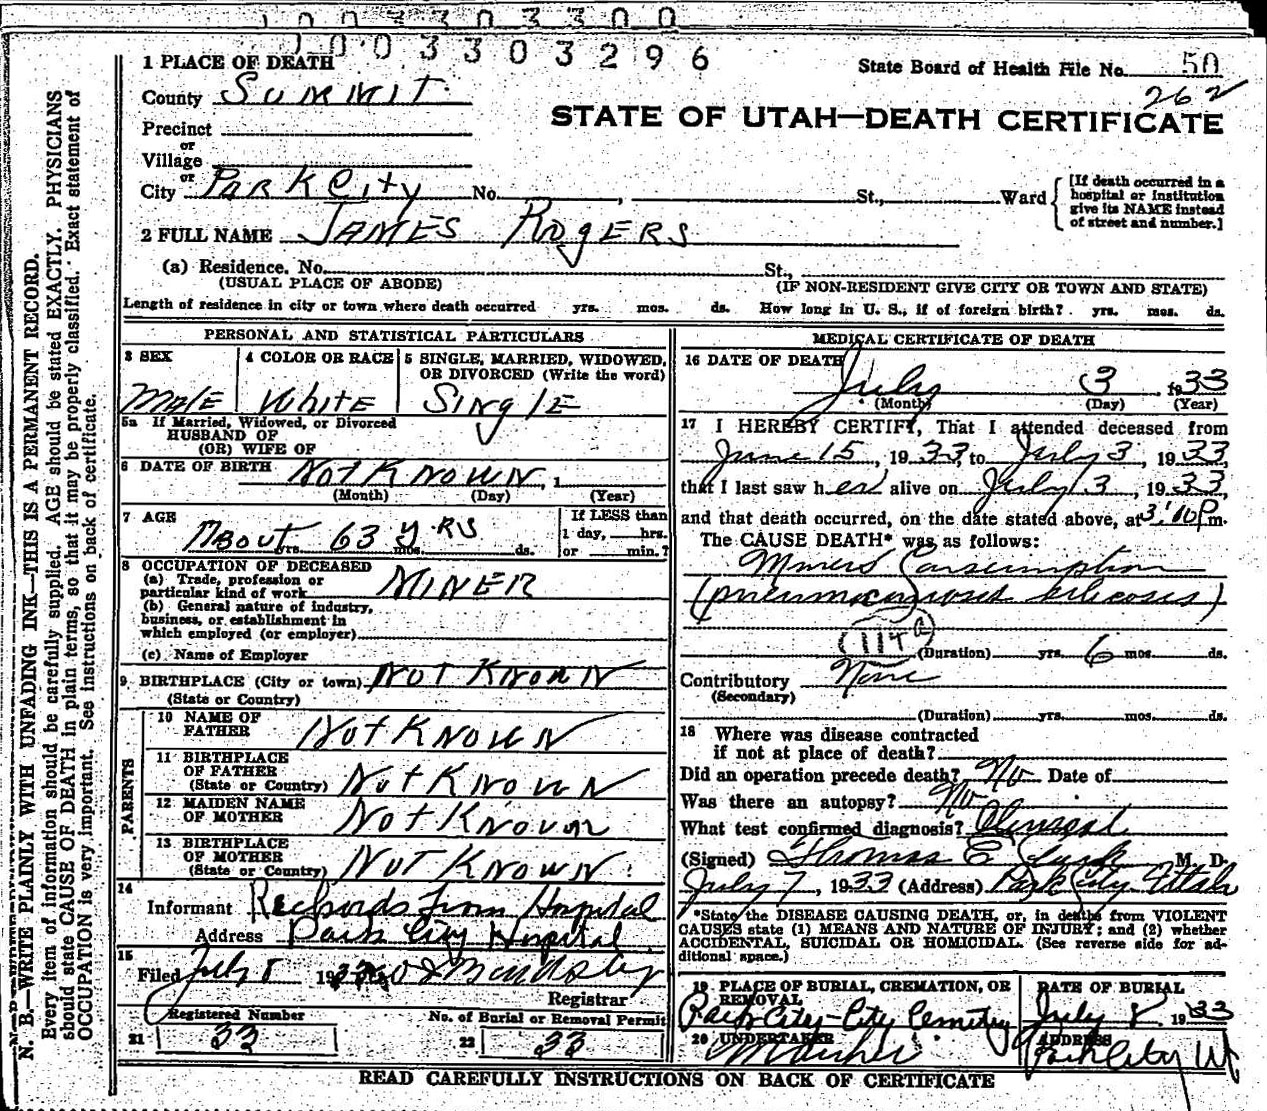 1003303300
1003303296
State Board of Health File No. 50
262
STATE OF UTAH—DEATH CERTIFICATE
1 PLACE OF DEATH
County SUMMIT
Precinct
or
Village
or
City PARK City No. , St., Ward
[If death occurred in a hospital or institution give its NAME instead of street and number.]
2 FULL NAME JAMES ROgERS
(a) Residence. No. St.,
(USUAL PLACE OF ABODE) (IF NON-RESIDENT GIVE CITY OR TOWN AND STATE)
Length of residence in city or town where death occurred yrs. mos. ds. How long in U. S., if of foreign birth? yrs. mos. ds.
PERSONAL AND STATISTICAL PARTICULARS
3 SEX
MALE
4 COLOR OR RACE
WhitE
5 SINGLE, MARRIED, WIDOWED, OR DIVORCED (Write the word)
SinglE
5a If Married, Widowed, or Divorced
HUSBAND OF
(OR) WIFE OF
6 DATE OF BIRTH Not KNOWN , 1
(Month) (Day) (Year)
7 AGE
About 63 yRS
yrs. mos. ds.
If LESS than
1 day, hrs.
or min.?
8 OCCUPATION OF DECEASED
(a) Trade, profession or
particular kind of work MINER
(b) General nature of industry,
business, or establishment in
which employed (or employer)
(c) Name of Employer
9 BIRTHPLACE (City or town) Not KNOWN
(State or Country)
PARENTS
10 NAME OF
FATHER Not KNOWN
11 BIRTHPLACE
OF FATHER
(State or Country) Not KNOWN
12 MAIDEN NAME
OF MOTHER Not KNOWN
13 BIRTHPLACE
OF MOTHER
(State or Country) NOT KNOWN
14
Informant Rechords From Hospital
Address Park City Hospital
15
Filed July 8 1933
Registrar
Registered Number No. of Burial or Removal Permit
21 33 22 33
MEDICAL CERTIFICATE OF DEATH
16 DATE OF DEATH
July 3 1933
(Month) (Day) (Year)
17 I HEREBY CERTIFY, That I attended deceased from
June 15, 1933, to July 3, 1933,
that I last saw h er alive on July 3, 1933,
and that death occurred, on the date stated above, at 3:10 P m.
The CAUSE DEATH* was as follows:
Miners Consumption
(114 a)
(Duration) yrs. 6 mos. ds.
Contributory None
(Secondary)
(Duration) yrs. mos. ds.
18 Where was disease contracted
if not at place of death?
Did an operation precede death? No Date of
Was there an autopsy? No
What test confirmed diagnosis? Clinical
(Signed) Thomas E M. D.
July 7, 1933 (Address) Park City Utah
*State the DISEASE CAUSING DEATH, or, in deaths from VIOLENT
CAUSES state (1) MEANS AND NATURE OF INJURY; and (2) whether
ACCIDENTAL, SUICIDAL OR HOMICIDAL. (See reverse side for ad-
ditional space.)
19 PLACE OF BURIAL, CREMATION, OR
REMOVAL
Park City-City Cemetery
DATE OF BURIAL
July 8 1933
20 UNDERTAKER
ADDRESS
Park City Ut
READ CAREFULLY INSTRUCTIONS ON BACK OF CERTIFICATE
N. B.—WRITE PLAINLY WITH UNFADING INK—THIS IS A PERMANENT RECORD.
Every item of information should be carefully supplied. AGE should be stated EXACTLY. PHYSICIANS
should state CAUSE OF DEATH in plain terms, so that it may be properly classified. Exact statement of
OCCUPATION is very important. See instructions on back of certificate.